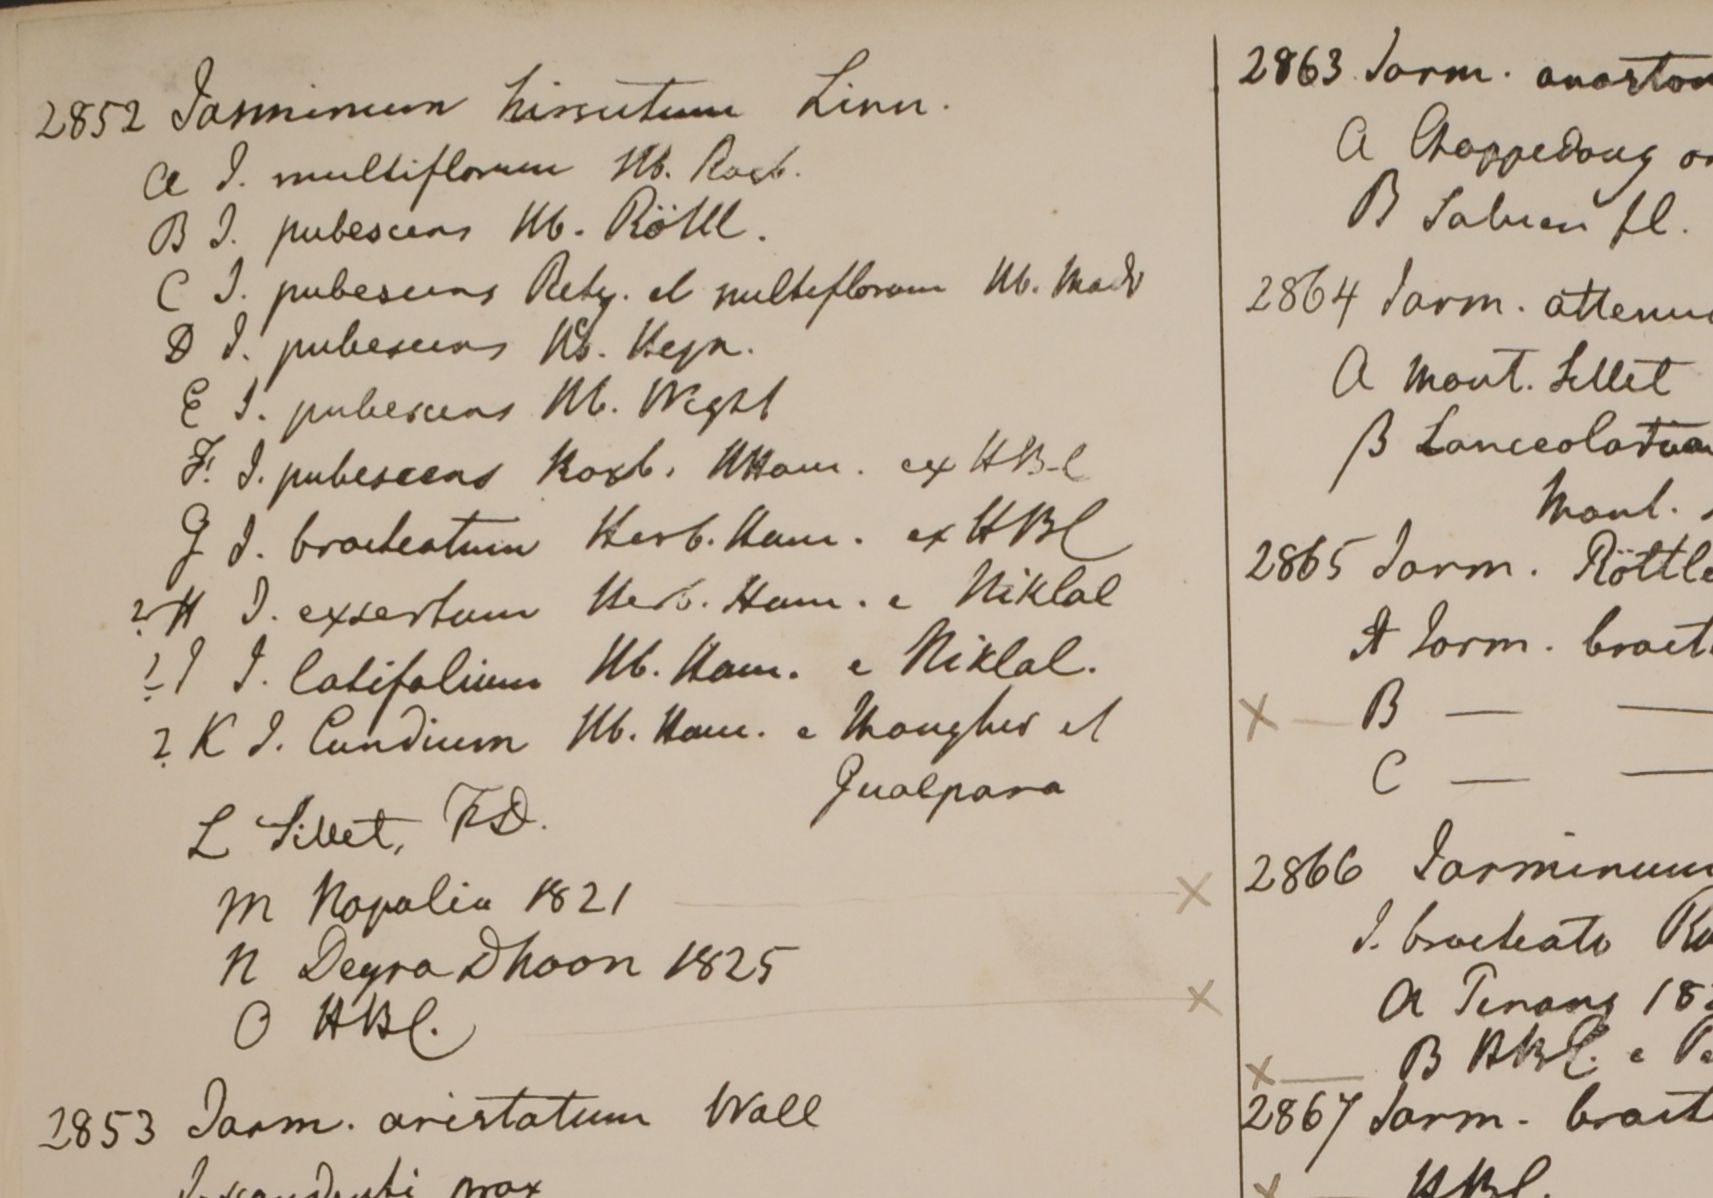 2852 Jasminum hirsutum Linn.
A J. multiflorum Hb. Roxb.
B J. pubescens Hb. Röttl.
C J. pubescens Retz. et multiflorum Hb. Madr
D J. pubescens Hb. Heyn.
E J. pubescens Hb. Wight
F. J. pubescens Roxb. HHam. ex HBC
G J. bracteatum Herb. Ham. ex HBC
? H J. exsertum Herb. Ham. e Niklal
? I J. latifolium Hb. Ham. e Niklal.
? K J. Cundium Hb. Ham. e Mongher et
Gualpara
L Sillet, FD.
M Napalia 1821 X
N Deyra Dhoon 1825
O HBC. X
2853 Jasm. aristatum Wall
J. scandenti prox
2863 Jasm. anaston
A Chappedong
B Saluen fl.
2864 Jasm. attenu
A Mont. Sillet
B Lanceolatum
Mont.
2865 Jasm. Röttle
A Jasm. bract
X — B — —
C — —
2866 Jasminum
J. bracteato Ro
A Penang 182
X — B HBC. e Pe
2867 Jasm. bract
X — HBC.